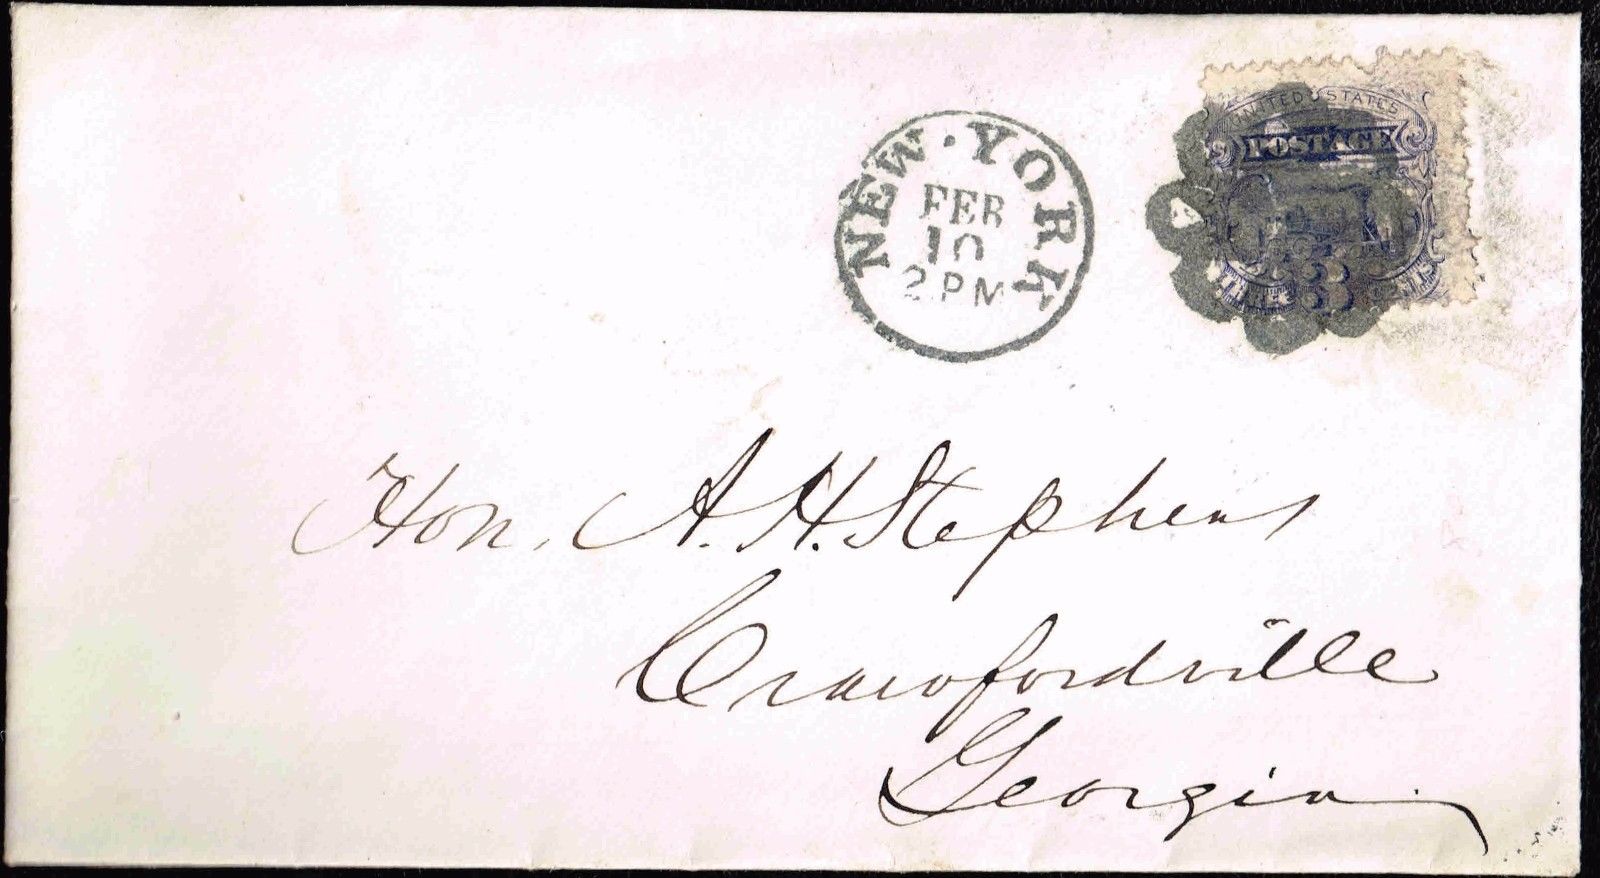 NEW · YORK
FEB
10
2 PM
UNITED STATES
POSTAGE
3
THREE CENTS
Hon. A. H. Stephens
Crawfordville
Georgia